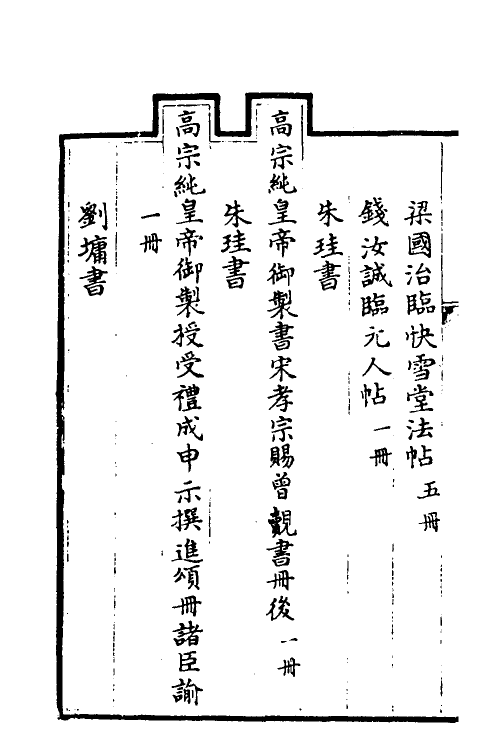 梁國治臨快雪堂法帖五冊
錢汝誠臨元人帖一冊
朱珪書
高宗純皇帝御製書宋孝宗賜曾覿書冊後一冊
朱珪書
高宗純皇帝御製授受禮成申示撰進頌冊諸臣諭
一冊
劉墉書